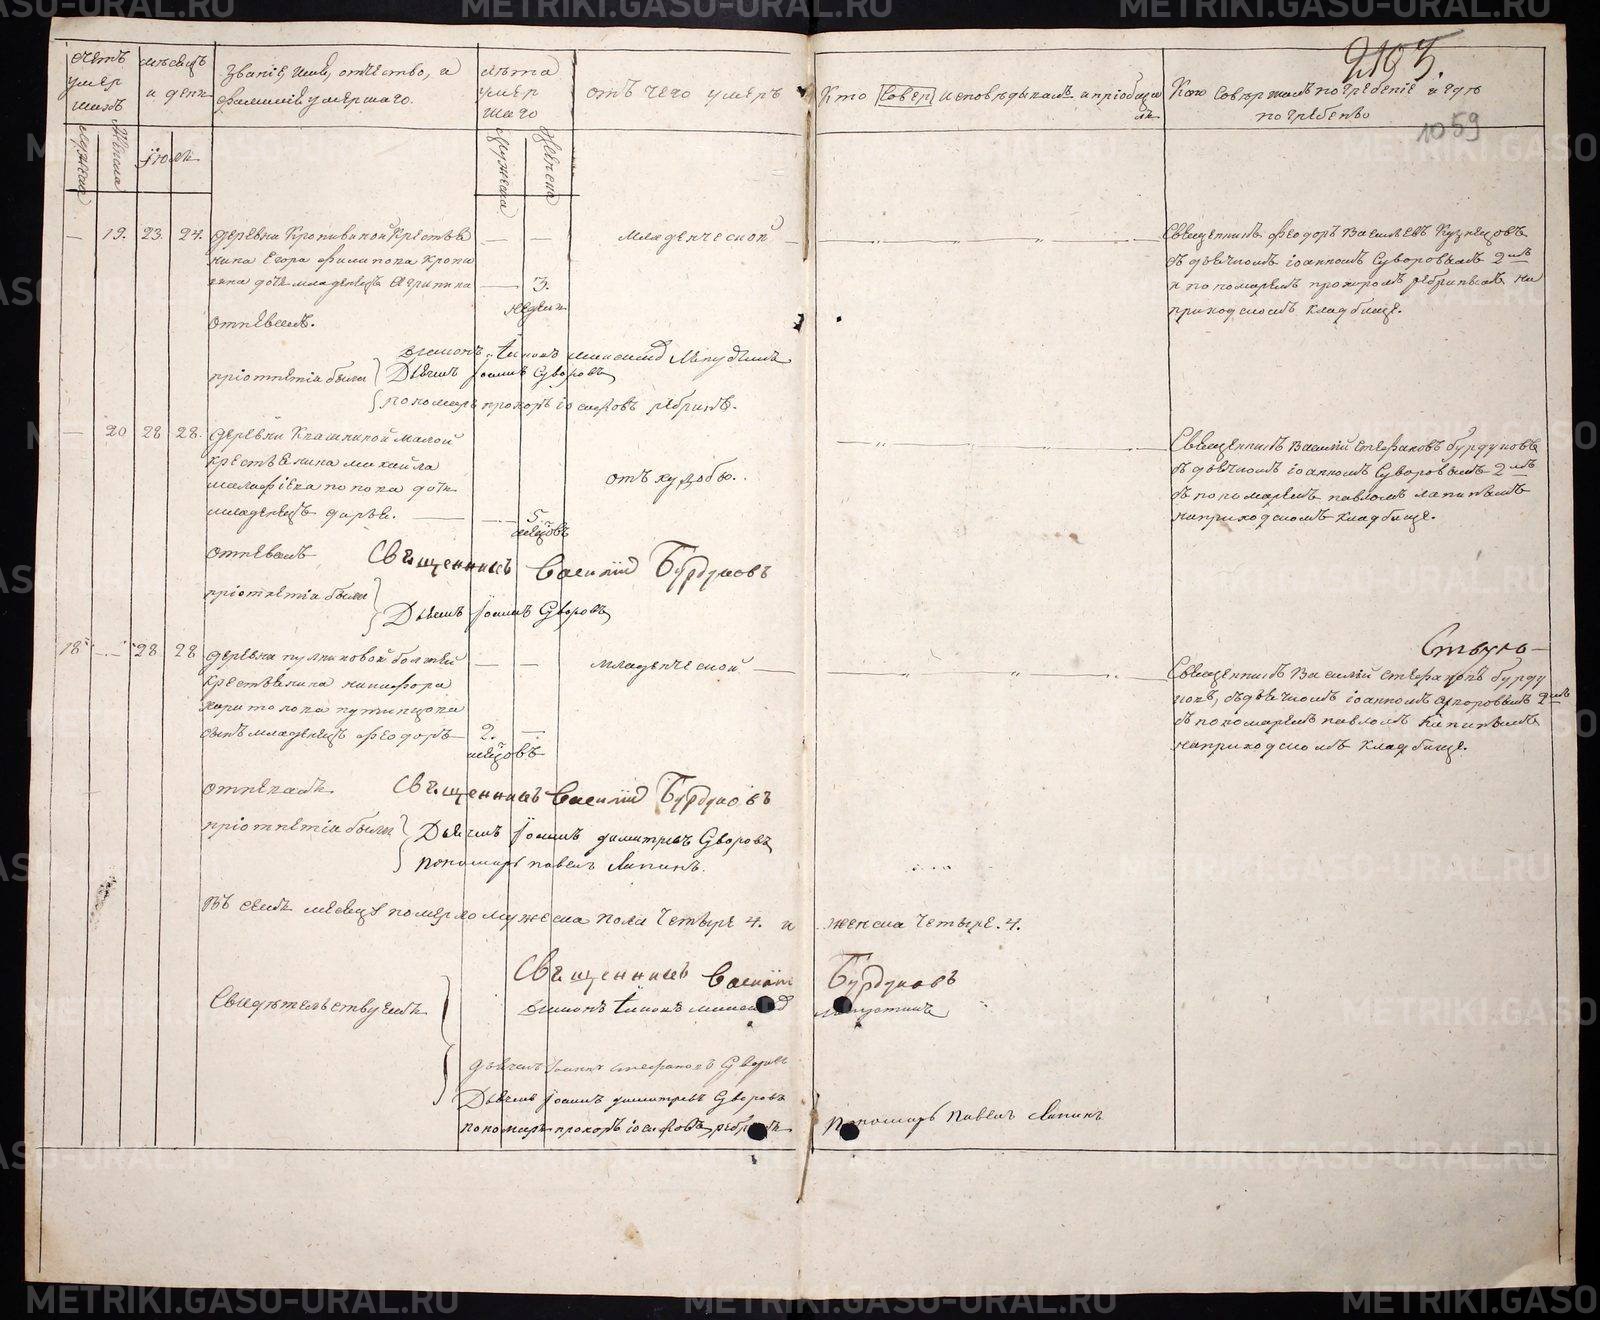 METRIKI.GASO-URAL.RU
2105.
1059
счетъ умершихъ
мѣсяцъ и день
званіе, имя, отчество, и фамилія умершаго.
лѣта умершаго
отъ чего умеръ
Кто исповѣдывалъ и пріобщалъ
Кто совершалъ погребеніе и гдѣ погребено
Мужеска
Женска
Іюль
мужеска
женска
— 19. 23. 24. деревни Кропивиной Крестья
нина Егора филипова Кропи
вина дочь младенецъ Агрипина
3.
недели
младенческой
Священникъ феодоръ Васильевъ Кузнецовъ
съ дьячкомъ іоанномъ Суворовымъ 2мъ
и пономаремъ прохоромъ ребринымъ на
приходскомъ кладбище.
отпевалъ.
пріотпетіи были
Дьячекъ Іоаннъ Суворовъ
пономарь прохоръ іосифовъ ребринъ.
— 20 28 28. деревни малой
крестьянина михайла
попова дочь
младенецъ дарья.
5
мѣсяцовъ
отъ худобы.
Священникъ Василій стефановъ бурдуковъ
съ дьячкомъ іоанномъ Суворовымъ 2мъ
съ пономаремъ павломъ лапинымъ
наприходскомъ кладбище.
отпевалъ Священникъ Василій Бурдуковъ
пріотпетіи были
Дьячекъ Іоаннъ Суворовъ
18 — 28 28 деревни большей
крестьянина никифора
харитонова путинцова
сынъ младенецъ феодоръ
2.
мѣсяцовъ
младенческой
Священникъ Василій стефановъ бурду
ковъ, съдьячкомъ іоанномъ суворовымъ 2мъ
съ пономаремъ павломъ лапинымъ
наприходскомъ кладбище.
отпевалъ Священникъ Василій Бурдуковъ
пріотпетіи были
Дьячекъ Іоаннъ димитріевъ Суворовъ
пономарь павелъ Лапинъ.
Въ семъ месяце померло мужеска пола четыре 4. и женска четыре. 4.
Священникъ Василій Бурдуковъ
Свидѣтельствуемъ
дьячекъ Іоаннъ стефановъ Суворовъ
Дьячекъ Іоаннъ димитріевъ Суворовъ
пономарь прохоръ іосифовъ ребринъ
Пономарь Павелъ Лапинъ